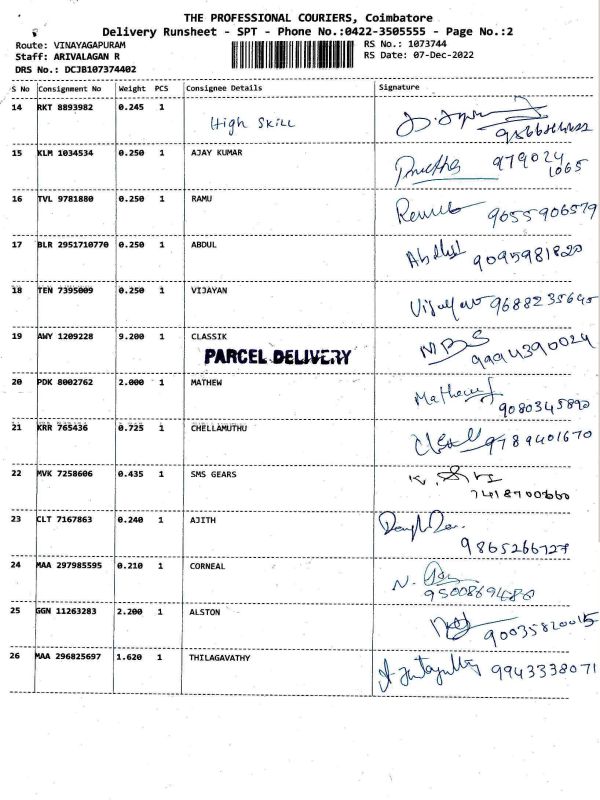 THE PROFESSIONAL COURIERS, Coimbatore
Delivery Runsheet - SPT - Phone No.:0422-3505555 - Page No.:2
Route: VINAYAGAPURAM RS No.: 1073744
Staff: ARIVALAGAN R RS Date: 07-Dec-2022
DRS No.: DCJB107374402
S No Consignment No Weight PCS Consignee Details Signature
14 RKT 8893982 0.245 1 High SKILL
15 KLM 1034534 0.250 1 AJAY KUMAR 979024
1065
16 TVL 9781880 0.250 1 RAMU 9655906579
17 BLR 2951710770 0.250 1 ABDUL 9095981820
18 TEN 7395009 0.250 1 VIJAYAN 9688235645
19 AWY 1209228 9.200 1 CLASSIK MBS
PARCEL DELIVERY 9994390024
20 PDK 8002762 2.000 1 MATHEW Mathew
9080345890
21 KRR 765436 0.725 1 CHELLAMUTHU 9789401670
22 MVK 7258606 0.435 1 SMS GEARS
7418700660
23 CLT 7167863 0.240 1 AJITH
9865266727
24 MAA 297985595 0.210 1 CORNEAL
9500869680
25 GGN 11263283 2.200 1 ALSTON 90035820015
26 MAA 296825697 1.620 1 THILAGAVATHY 9943338071